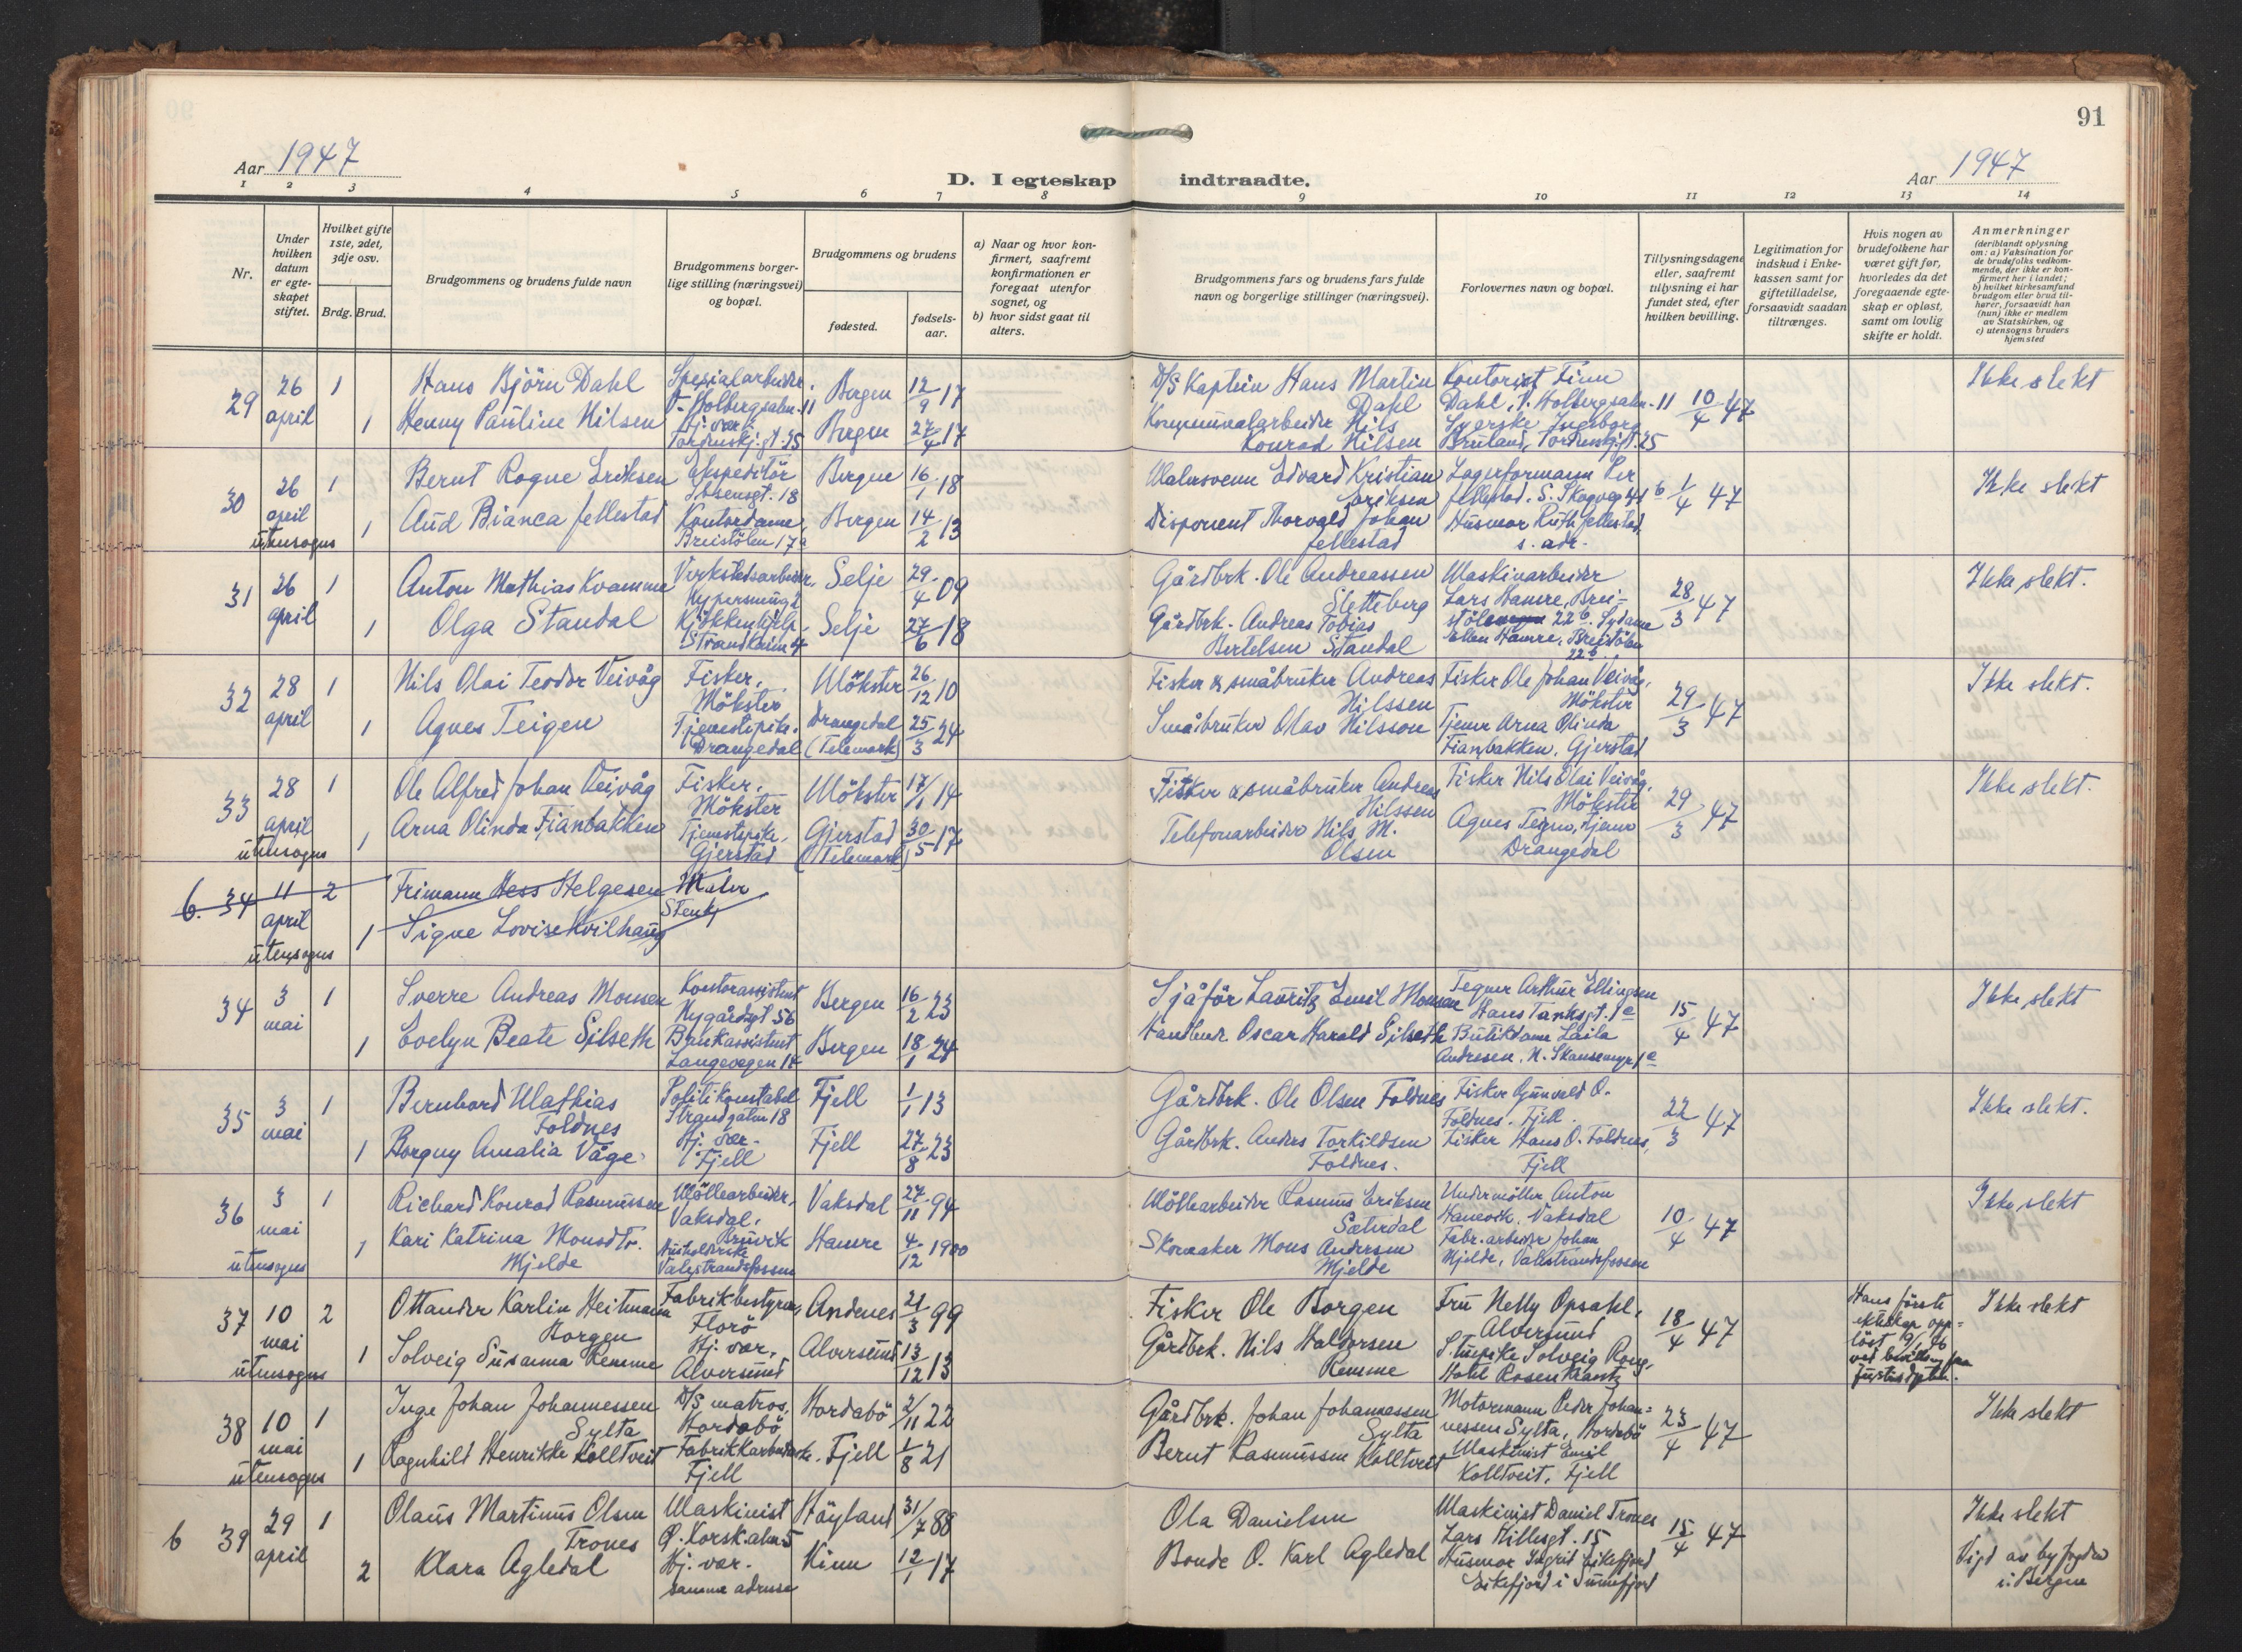 91
Aar 1947
D. I egteskap indtraadte.
Aar 1947
1 2 3 4 5 6 7 8 9 10 11 12 13 14
Nr.
Under hvilken datum er egteskapet stiftet.
Hvilket gifte 1ste, 2det, 3dje osv.
Brdg. Brud.
Brudgommens og brudens fulde navn
Brudgommens borgerlige stilling (næringsvei) og bopæl.
Brudgommens og brudens
fødested.
fødselsaar.
a) Naar og hvor konfirmert, saafremt konfirmationen er foregaat utenfor sognet, og
b) hvor sidst gaat til alters.
Brudgommens fars og brudens fars fulde navn og borgerlige stillinger (næringsvei).
Forlovernes navn og bopæl.
Tillysningsdagene eller, saafremt tillysning ei har fundet sted, efter hvilken bevilling.
Legitimation for indskud i Enkekassen samt for giftetilladelse, forsaavidt saadan tiltrænges.
Hvis nogen av brudefolkene har været gift før, hvorledes da det foregaaende egteskap er opløst, samt om lovlig skifte er holdt.
Anmerkninger
(deriblandt oplysning om: a) Vaksination for de brudefolks vedkommende, der ikke er konfirmert her i landet; b) hvilket kirkesamfund brudgom eller brud tilhører, forsaavidt han (hun) ikke er medlem av Statskirken, og c) utensogns bruders hjemsted
29 26 april 1 Hans Björn Dahl Spesialarbeider, Holbergsalm. 11 Bergen 12/9 17 D/S Kaptein Hans Martin Dahl Kontorist Finn Dahl, Holbergsalm. 11 10/4 47 Ikke slekt
1 Henny Pauline Nilsen Hj. vær. Tordenskj.gt. 25 Bergen 27/4 17 Kommunalarbeider Nils Konrad Nilsen Syerske Ingeborg Bruland, Tordenskj.gt. 25
30 26 april utensogns 1 Bernt Rogne Eriksen Ekspeditör Ibsensgt. 18 Bergen 16/1 18 Malersvenn Edvard Kristian Eriksen Lagerformann Per Jellestad. S. Skogveg 41 b 1/4 47 Ikke slekt
1 Aud Bianca Jellestad Kontordame, Breistölen 17a Bergen 14/2 13 Disponent Thorvald Johan Jellestad Husmor Ruth Jellestad, s. adr.
31 26 april 1 Anton Mathias Kvamme Verkstedsarbeider, Selje 29/4 09 Gårdbrk. Ole Andreassen Sletteberg Maskinarbeider Lars Hamre, Breistölen 22b. Sydame Ellen Hamre, Breistölen 22b. 28/3 47 Ikke slekt.
1 Olga Standal Kjökkenhjelp Strandkaien 4 Selje 27/6 18 Gårdbrk. Andreas Tobias Bertelsen Standal
32 28 april 1 Nils Olai Teodor Veivåg Fisker, Mökster Mökster 26/12 10 Fisker & småbruker Andreas Nilssen Fisker Ole Johan Veivåg, Mökster 29/3 47 Ikke slekt.
1 Agnes Teigen Tjenestepike. Drangedal Drangedal (Telemark) 25/3 24 Småbruker Olav Nilsson Tjener Arna Olinda Fianbakken, Gjerstad
33 28 april utensogns 1 Ole Alfred Johan Veivåg Fisker, Mökster Mökster 17/1 14 Fisker & småbruker Andreas Nilssen Fisker Nils Olai Veivåg, Mökster 29/3 47 Ikke slekt.
1 Arna Olinda Fianbakken Tjenestepike, Gjerstad Gjerstad (Telemark) 30/5 17 Telefonarbeider Nils M. Olsen Agnes Teigen, tjener Drangedal
6. 34 11 april utensogns 2 Frimann Hess Helgesen Maler
1 Signe Lovise Kvilhaug
34 3 mai 1 Sverre Andreas Monsen Kontorassistent Nygårdsgt 56 Bergen 16/2 23 Sjåför Lauritz Emil Monsen Tegner Arthur Ellingsen Hans Tanksgt. 1e 15/4 47 Ikke slekt
1 Evelyn Beate Gilseth Bankassistent Langevegen 14 Bergen 18/1 24 Handlende Oscar Harald Gilseth Butikdame Laila Andresen, N. Skansemyr 1e
35 3 mai 1 Bernhard Mathias Foldnes Politikonstabel Strandgaten 18 Fjell 1/1 13 Gårdbrk. Ole Olsen Foldnes Fisker Gunvald O. Foldnes, Fjell. 22/3 47 Ikke slekt.
1 Borgny Amalia Våge Hj. vær. Fjell Fjell 27/8 23 Gårdbrk. Anders Torkildsen Foldnes. Fisker Hans O. Foldnes, Fjell
36 3 mai utensogns 1 Richard Konrad Rasmussen Möllearbeider, Vaksdal. Bruvik Vaksdal 27/11 94 Möllearbeider Rasmus Eriksen Sæterdal Undermöller Anton Hanevik, Vaksdal 10/4 47 Ikke slekt
1 Kari Katrina Monsdtr. Mjelde Husholderske Valestrandsfossen Hamre 4/12 1900 Skomaker Mons Andersen Mjelde Fabr.arbeider Johan Mjelde, Valestrandsfossen
37 10 mai utensogns 2 Ottander Karlin Heitmann Borgen Fabrikbestyrer, Florö Andenes 21/3 99 Fisker Ole Borgen Fru Nelly Opsahl, Alversund 18/4 47 Hans förste ekteskap opplöst 9/1 46 ved bevilling fra Justisdptet. Ikke slekt
1 Solveig Susanna Remme Hj. vær, Alversund Alversund 13/12 13 Gårdbrk. Nils Haldorsen Remme Stuepike Solveig Rong, Hotel Rosenkrantz
38 10 mai utensogns 1 Inge Johan Johannessen Sylta D/S matros, Hordabö Hordabö 2/11 22 Gårdbrk. Johan Johannessen Sylta Motormann Peder Johannessen Sylta, Hordabö 23/4 47 Ikke slekt
1 Ragnhild Henrikke Kolltveit Fabrikkarbeiderske. Fjell Fjell 1/8 21 Bernt Rasmussen Kolltveit Maskinist Emil Kolltveit, Fjell
6 39 29 april 1 Olaus Martinus Olsen Trones Maskinist Ø. Korsk.alm. 5 Höyland 31/7 88 Ola Danielsen Maskinist Daniel Trones Lars Hillesgt. 15 15/4 47 Ikke slekt
2 Klara Agledal Hj. vær. samme adresse Kinn 12/1 17 Bonde O. Karl Agledal Husmor Ingrid Eikefjord Eikefjord i Sunnfjord Vigd av byfogden i Bergen